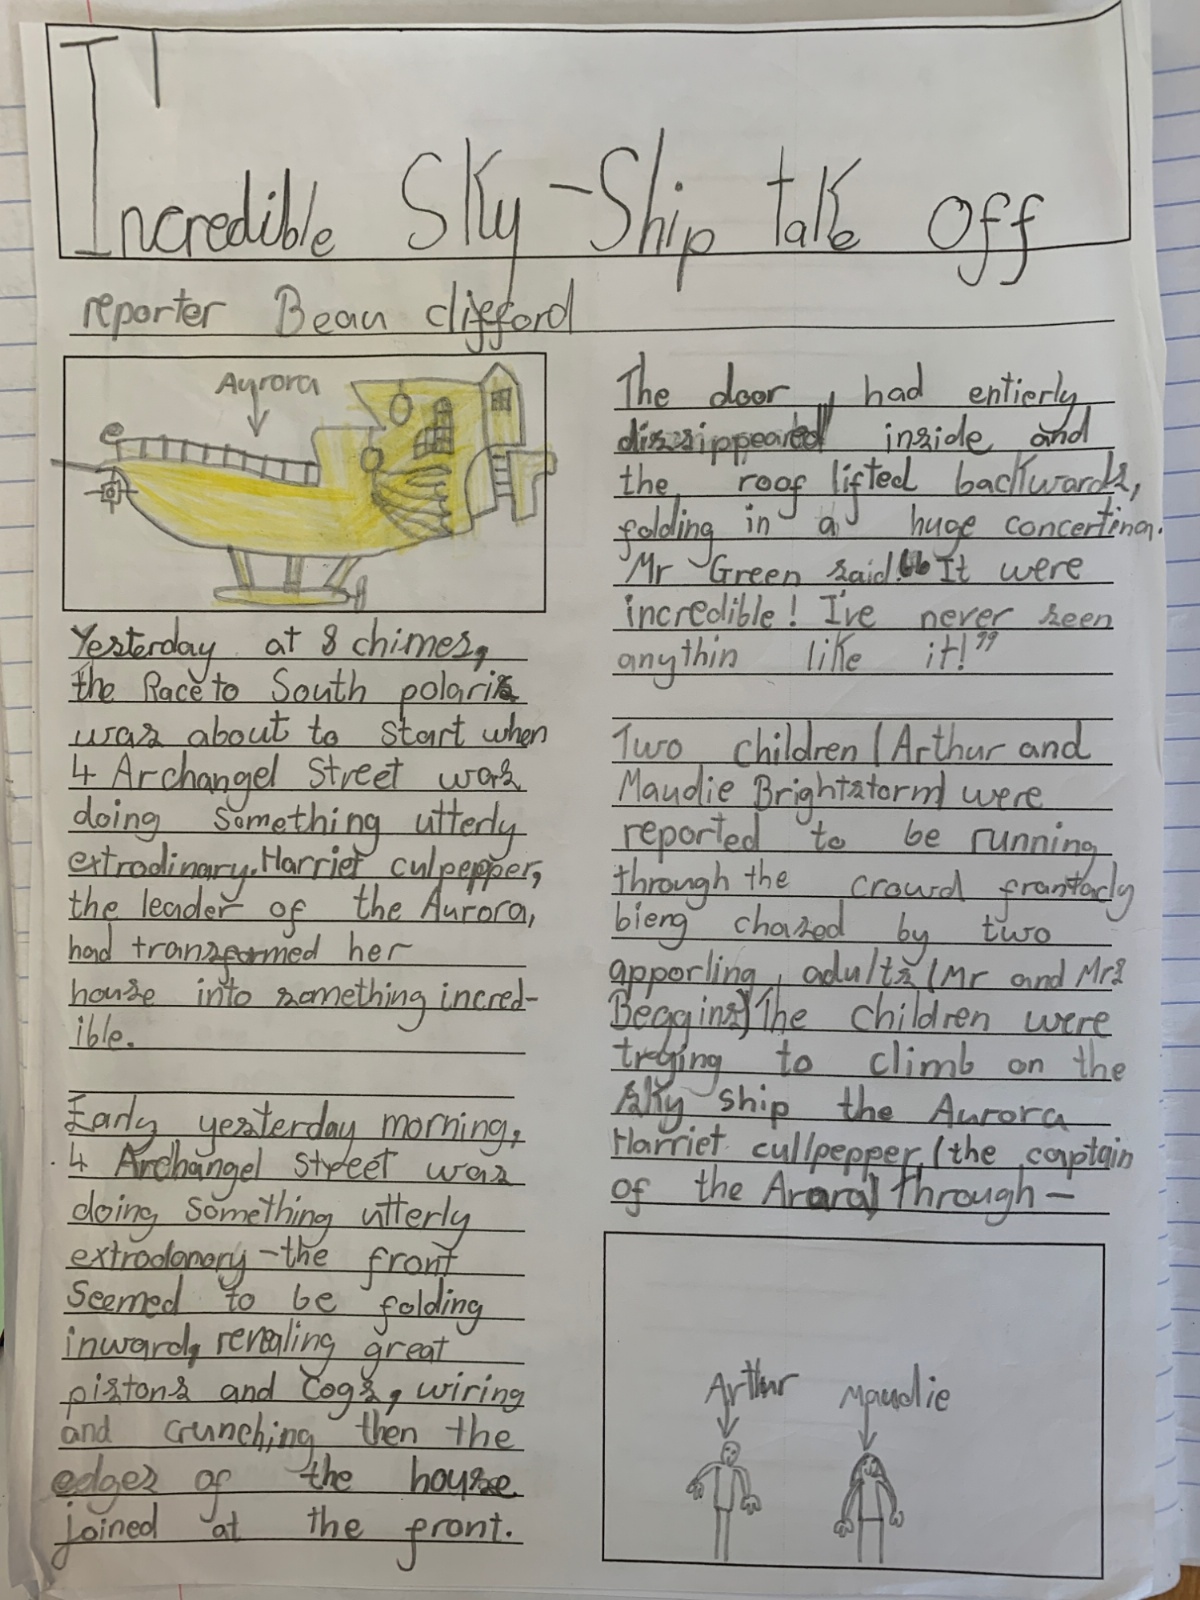 Incredible Sky-Ship take off
reporter Beau clifford
Aurora
Yesterday at 8 chimes,
the Race to South polaris
was about to start when
4 Archangel Street was
doing something utterly
extrodinary. Harriet culpepper,
the leader of the Aurora,
had transformed her
house into something incred-
ible.
Early yesterday morning,
4 Archangel street was
doing something utterly
extrodonory - the front
seemed to be folding
inward, revealing great
pistons and cogs, wiring
and crunching then the
edges of the house
joined at the front.
The door, had entierly
dissippeared inside and
the roof lifted backwards,
folding in a huge concertina.
Mr Green said “It were
incredible! I've never seen
anythin like it!”
Two children (Arthur and
Maudie Brightstorm) were
reported to be running
through the crowd frantacly
bieng chased by two
apporling, adults (Mr and Mrs
Beggins) The children were
trying to climb on the
sky ship the Aurora
Harriet cullpepper, (the captain
of the Arara) through -
Arthur Maudie